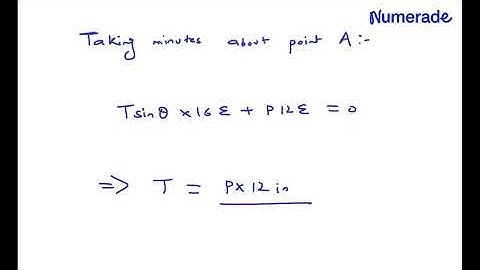 Numerade
Taking minutes about point A:-
Tsinθ x16 Ɛ + P12Ɛ = 0
=> T = Px12 in